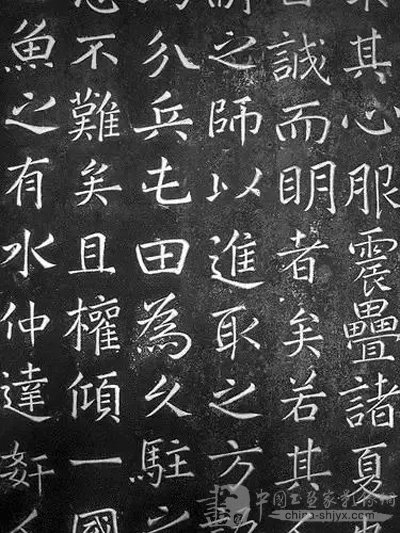 其心服震疊諸夏
誠而明者矣若其
之師以進取之方
分兵屯田為久駐之
不難矣且權傾一國
魚之有水仲達奸
china-shjyx.com